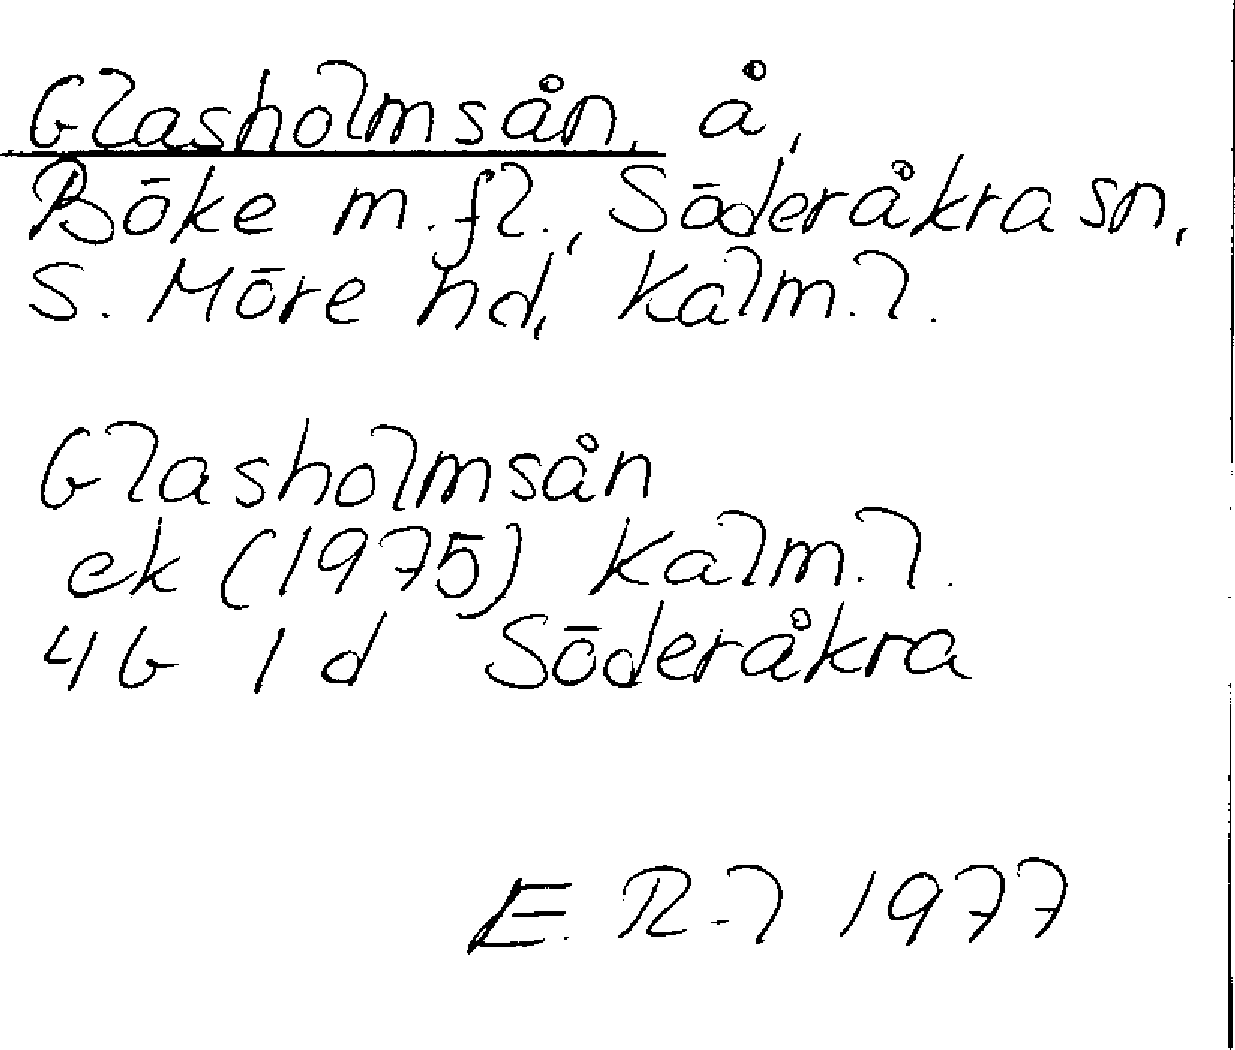 Glasholmsån, å,
Böke m.fl., Söderåkra sn,
S. Möre hd, Kalm. l.
Glasholmsån
ek (1975) Kalm. l.
4G 1d Söderåkra
E. R-l 1977